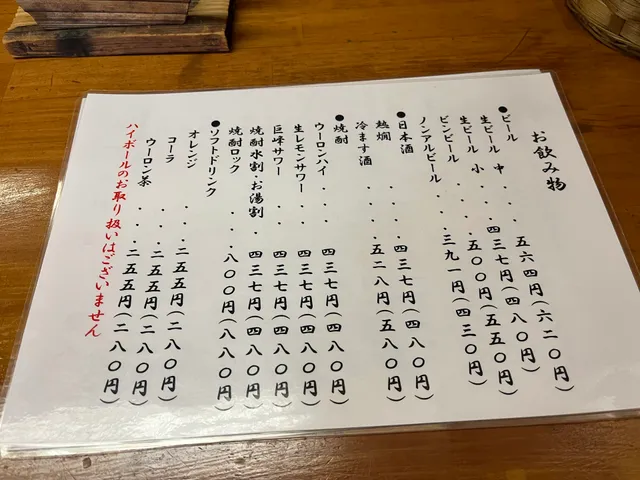 お飲み物
●ビール
生ビール 中・・・五六四円(六二〇円)
生ビール 小・・四三七円(四八〇円)
ビンビール・・・五〇〇円(五五〇円)
ノンアルビール・・三九一円(四三〇円)
●日本酒
熱燗・・・・四三七円(四八〇円)
冷ます酒・・・・五二八円(五八〇円)
●焼酎
ウーロンハイ・・・四三七円(四八〇円)
生レモンサワー・・四三七円(四八〇円)
巨峰サワー・・・四三七円(四八〇円)
焼酎水割・お湯割・四三七円(四八〇円)
焼酎ロック・・・八〇〇円(八八〇円)
●ソフトドリンク
オレンジ・・・・二五五円(二八〇円)
コーラ・・・・二五五円(二八〇円)
ウーロン茶・・・二五五円(二八〇円)
ハイボールのお取り扱いはございません